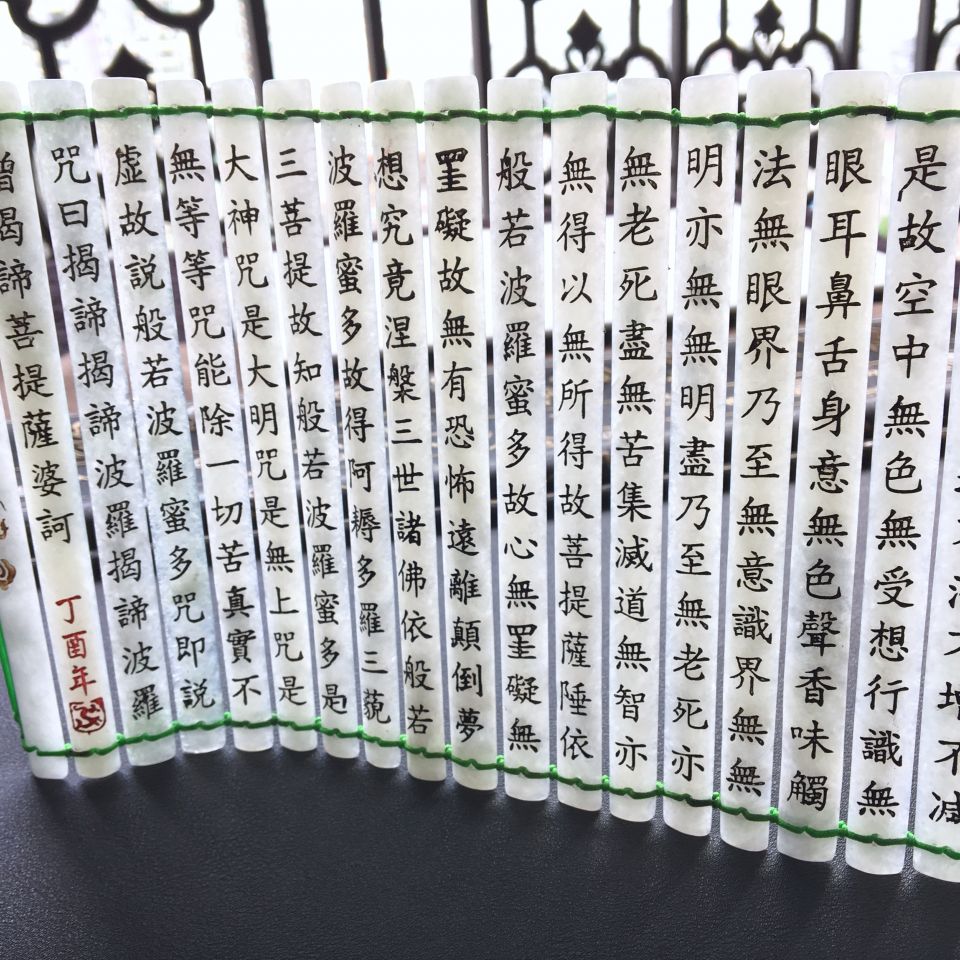 增不減
是故空中無色無受想行識無
眼耳鼻舌身意無色聲香味觸
法無眼界乃至無意識界無無
明亦無無明盡乃至無老死亦
無老死盡無苦集滅道無智亦
無得以無所得故菩提薩陲依
般若波羅蜜多故心無罣礙無
罣礙故無有恐怖遠離顛倒夢
想究竟涅槃三世諸佛依般若
波羅蜜多故得阿耨多羅三藐
三菩提故知般若波羅蜜多是
大神咒是大明咒是無上咒是
無等等咒能除一切苦真實不
虛故説般若波羅蜜多咒即説
咒曰揭諦揭諦波羅揭諦波羅
僧揭諦菩提薩婆訶
丁酉年